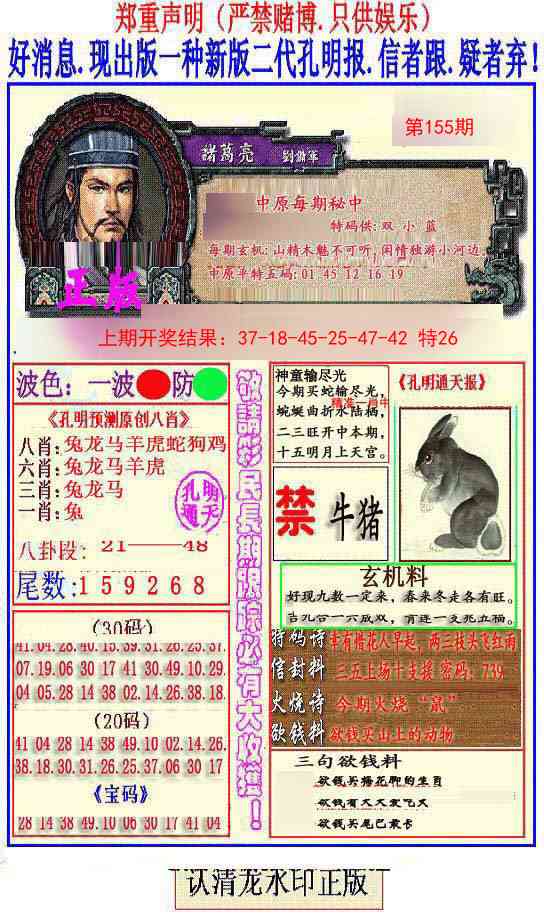 郑重声明（严禁赌博.只供娱乐）
好消息.现出版一种新版二代孔明报.信者跟.疑者弃!
第155期
諸葛亮
中原每期秘中
特码供:双 小 蓝
每期玄机:山精木魅不可听,闲情独游小河边.
中原平特五码:01 45 12 16 19
正版
上期开奖结果: 37-18-45-25-47-42 特26
波色: 一波 防
《孔明预测原创八肖》
八肖:兔龙马羊虎蛇狗鸡
六肖:兔龙马羊虎
三肖:兔龙马
一肖:兔
孔明
通天
八卦段: 21——48
尾数:159268
(30码)
41.04.28.40.15.39.31.26.25.37.
07.19.06 30 17 41.30 49.10.29
04 05.28 14 38 02.14.26.38.18
(20码)
41 04 28 14 38 49.10 02.14.26.
38.18.30.31.26.25.37.06 30 17
《宝码》
28 14 38 49.10.06 30 17 41 04
敬請彩民長期跟踪必有大收獲!
神童输尽光
今期买蛇输尽光,
精准一肖牛
蜿蜒曲折水陆栖,
二三旺开中本期,
十五明月上天宫。
《孔明通天报》
禁 牛猪
玄机料
好现九数一定来，春来冬走各有旺。
特码诗
幸有惜花人早起,两三枝头飞红雨
信封料
三五上场十支援 密码: 739
火烧诗
今期火烧“鼠”
欲钱料
欲钱买山上的动物
三句欲钱料
欲钱买梅花脚的生肖
欲钱有天天爱飞天
欲钱买尾巴最卡
认清龙水印正版